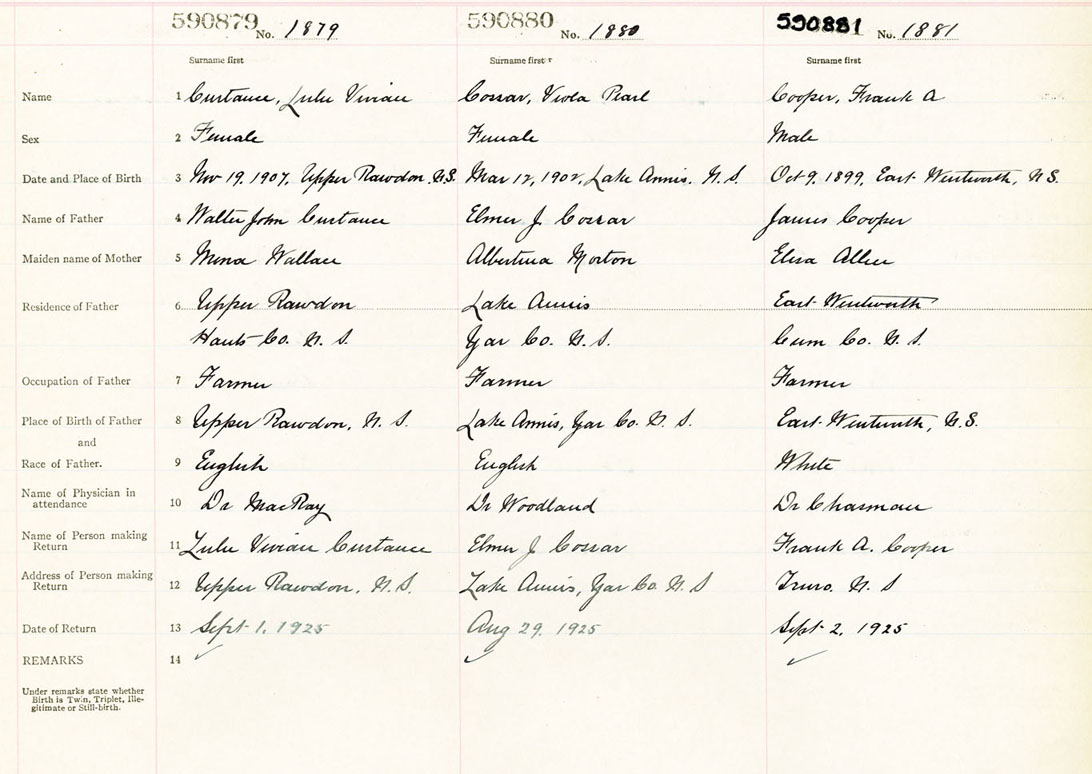 590879 No. 1879 590880 No. 1880 590881 No. 1881
Surname first Surname first Surname first
Name 1 Custance, Lulu Vivian Cossar, Viola Pearl Cooper, Frank A
Sex 2 Female Female Male
Date and Place of Birth 3 Nov 19, 1907, Upper Rawdon, N.S. Mar 12, 1902, Lake Annis, N.S. Oct 9, 1899, East Wentworth, N.S.
Name of Father 4 Walter John Custance Elmer J. Cossar James Cooper
Maiden name of Mother 5 Mena Wallace Albertina Morton Eliza Allen
Residence of Father 6 Upper Rawdon Lake Annis East Wentworth
Hants Co. N.S. Yar Co. N.S. Cum Co. N.S.
Occupation of Father 7 Farmer Farmer Farmer
Place of Birth of Father 8 Upper Rawdon, N.S. Lake Annis, Yar Co. N.S. East Wentworth, N.S.
and
Race of Father. 9 English English White
Name of Physician in
attendance 10 Dr MacRay Dr Woodland Dr Chasman
Name of Person making
Return 11 Lulu Vivian Custance Elmer J Cossar Frank A. Cooper
Address of Person making
Return 12 Upper Rawdon, N.S. Lake Annis, Yar Co. N.S Truro. N.S
Date of Return 13 Sept 1, 1925 Aug 29, 1925 Sept 2, 1925
REMARKS 14
Under remarks state whether
Birth is Twin, Triplet, Ille-
gitimate or Still-birth.